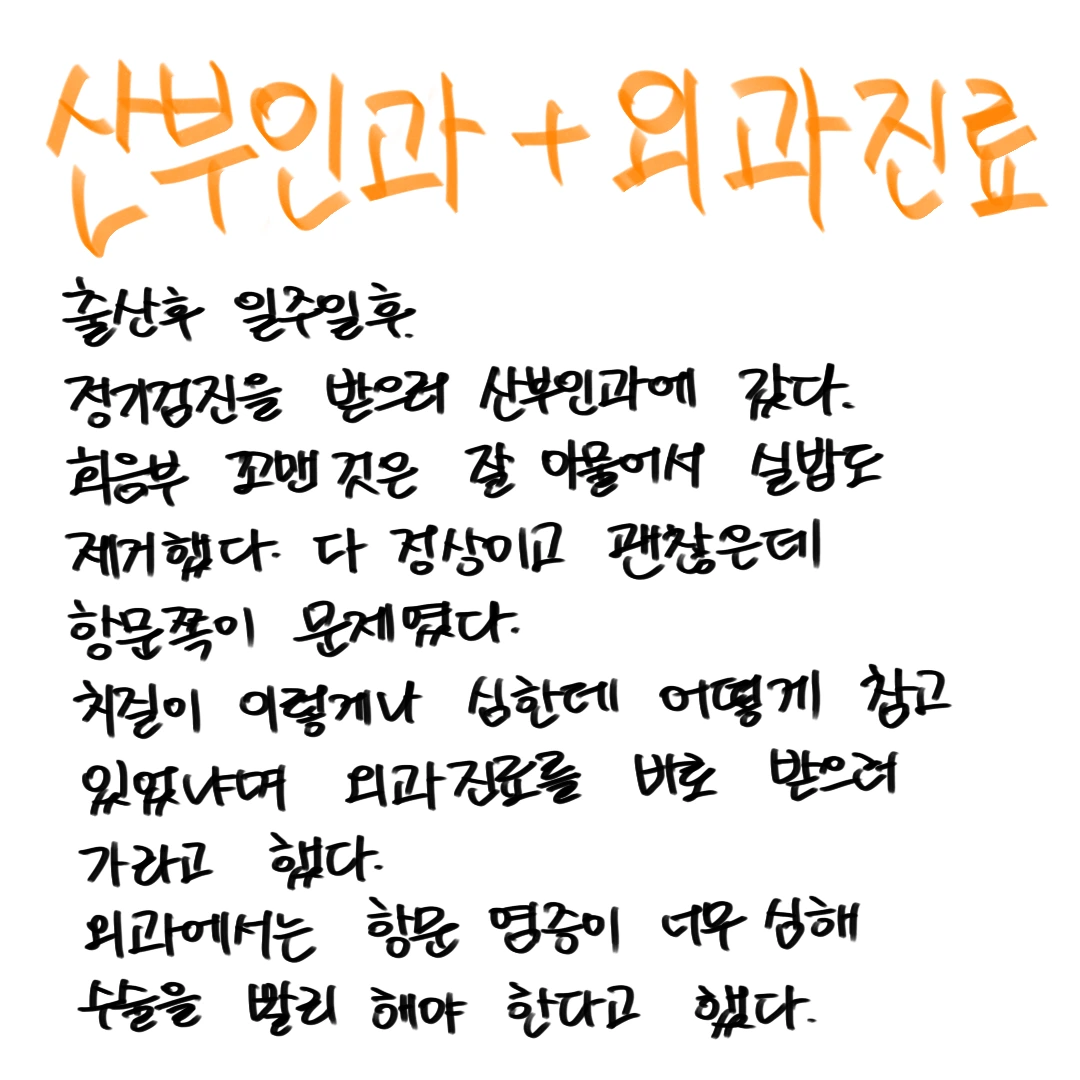 산부인과 + 외과진료
출산후 일주일후.
정기검진을 받으러 산부인과에 갔다.
회음부 꼬맨것은 잘 아물어서 실밥도
제거했다. 다 정상이고 괜찮은데
항문쪽이 문제였다.
치질이 이렇게나 심한데 어떻게 참고
있었냐며 외과진료를 바로 받으러
가라고 했다.
외과에서는 항문 염증이 너무 심해
수술을 빨리 해야 한다고 했다.